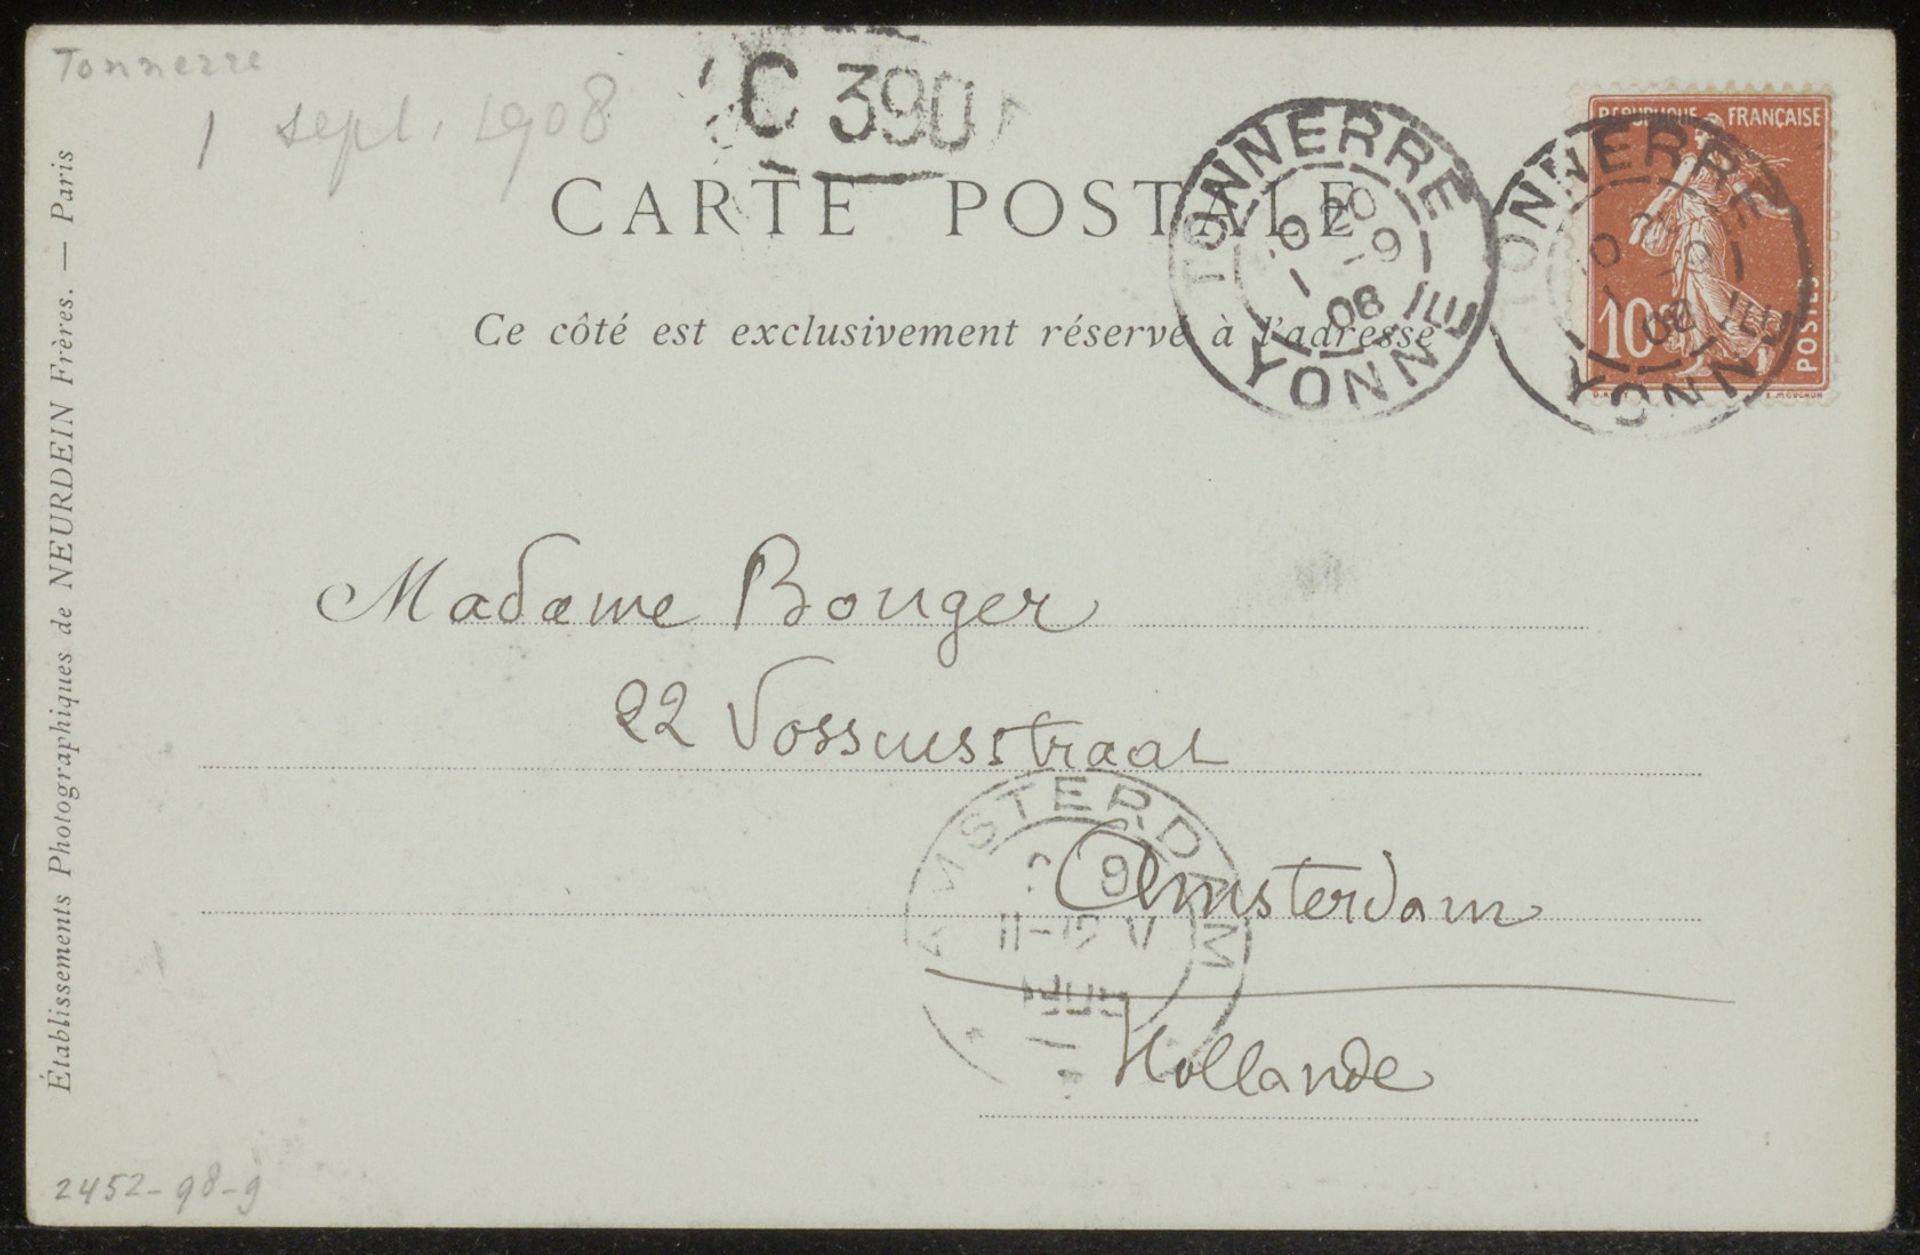 Tonnerre
1 sept. 1908
C 390
CARTE POSTALE
Ce côté est exclusivement réservé à l'adresse
TONNERRE
20
1 -9
08
YONNE
TONNERRE
08
YONNE
REPUBLIQUE FRANÇAISE
10
POSTES
E. MOUCHON
Madame Bonger
22 Vossiusstraat
Amsterdam
Hollande
AMSTERDAM
9
11-12 V
Établissements Photographiques de NEURDEIN Frères. — Paris
2452-98-9